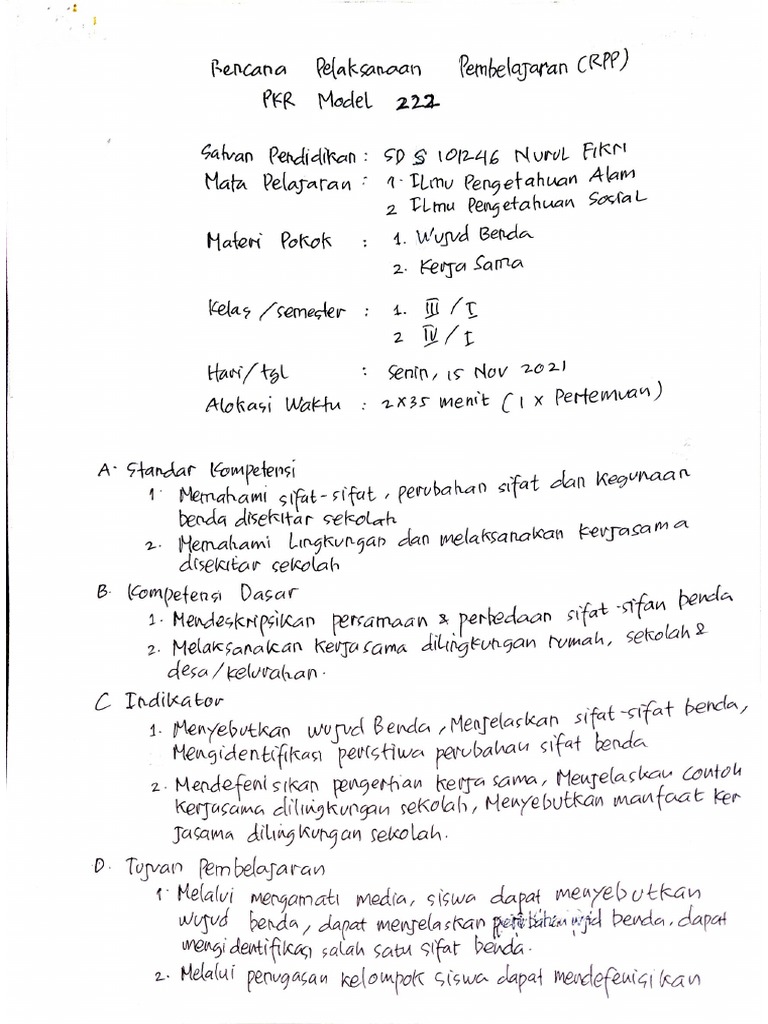 Rencana Pelaksanaan Pembelajaran (RPP)
PKR Model 222
Satuan Pendidikan : SD S 101246 Nurul Fikri
Mata Pelajaran : 1. Ilmu Pengetahuan Alam
2 Ilmu Pengetahuan Sosial
Materi Pokok : 1. Wujud Benda
2. Kerja Sama
Kelas /semester : 1. III / I
2 IV / I
Hari/tgl : Senin, 15 Nov 2021
Alokasi Waktu : 2x35 menit (1 x Pertemuan)
A. Standar Kompetensi
1. Memahami sifat-sifat, perubahan sifat dan kegunaan
benda disekitar sekolah
2. Memahami Lingkungan dan melaksanakan kerjasama
disekitar sekolah
B. Kompetensi Dasar
1. Mendeskripsikan persamaan & perbedaan sifat-sifan benda
2. Melaksanakan kerjasama dilingkungan rumah, sekolah &
desa/kelurahan.
C Indikator
1. Menyebutkan wujud Benda, Menjelaskan sifat-sifat benda,
Mengidentifikasi peristiwa perubahan sifat benda
2. Mendefenisikan pengertian kerja sama, Menjelaskan contoh
kerjasama dilingkungan sekolah, Menyebutkan manfaat ker
jasama dilingkungan sekolah.
D. Tujuan Pembelajaran
1. Melalui mengamati media, siswa dapat menyebutkan
wujud benda, dapat menjelaskan benda, dapat
mengidentifikasi salah satu sifat benda.
2. Melalui penugasan kelompok siswa dapat mendefenisikan